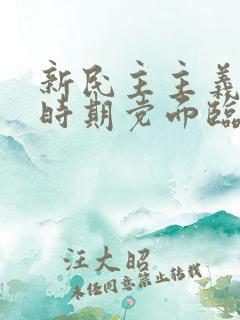 新民主主义
时期党面临
汪大昭
未经同意禁止转载